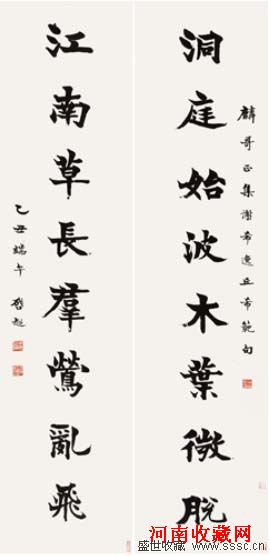 洞庭始波木葉微脫
麟哥正集謝希逸丘希範句
江南草長群鶯亂飛
乙丑端午 啓超
河南收藏网
盛世收藏 www.sssc.cn